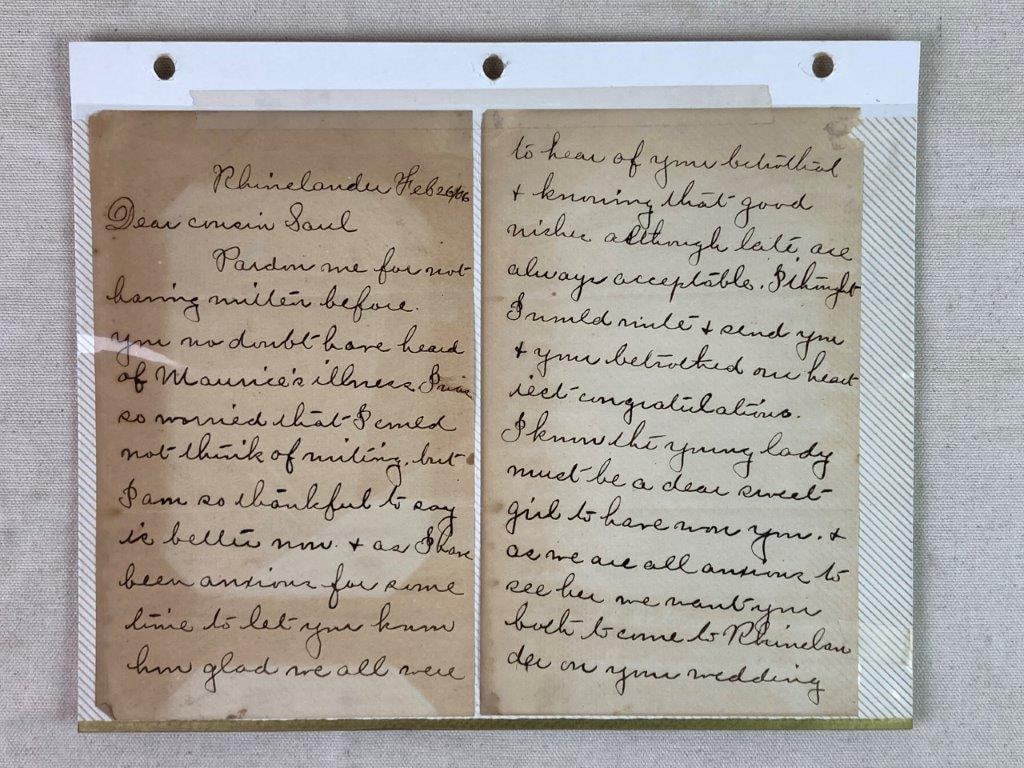 Rhinelander Feb 26/06
Dear cousin Saul
Pardon me for not
having written before.
you no doubt have heard
of Maurice's illness. I was
so worried that I could
not think of writing, but
I am so thankful to say
is better now. & as I have
been anxious for some
time to let you know
how glad we all were
to hear of your betrothal
& knowing that good
wishes although late, are
always acceptable. I thought
I would write & send you
& your betrothed our heart
iest congratulations.
I know the young lady
must be a dear sweet
girl to have won you. &
as we are all anxious to
see her we want you
both to come to Rhinelan
der on your wedding